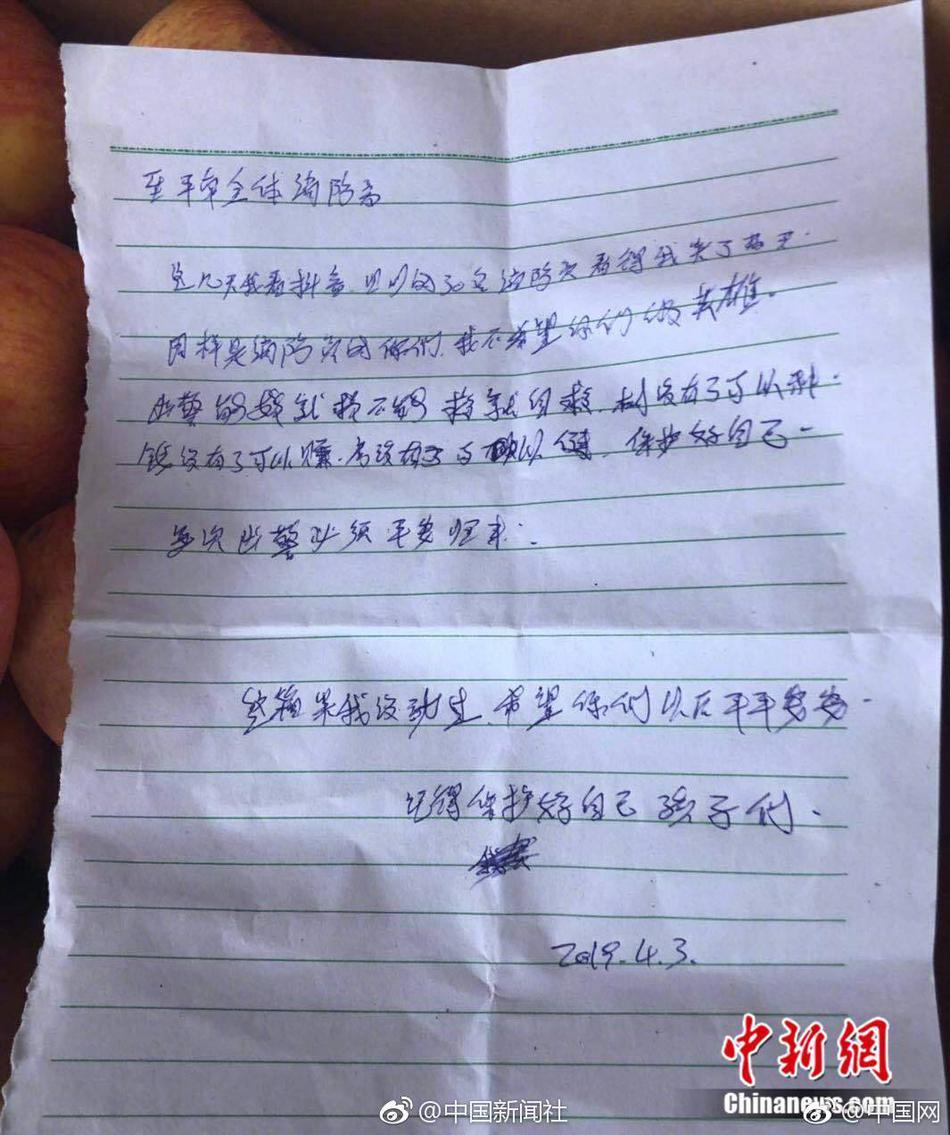 至平阜全体消防员
这几天我看抖音.四川的30名消防员看得我哭了两天.
同样是消防员的你们.我不希望你们做英雄.
出警能救就救不能救就自救.树没有了可以种.
钱没有了可以赚.房没有了可以建.保护好自己.
每次出警必须平安归来.
这箱果我没动过.希望你们以后平平安安.
记得保护好自己孩子们.
2019.4.3.
中新網
Chinanews.com
@中国新闻社
@中国网